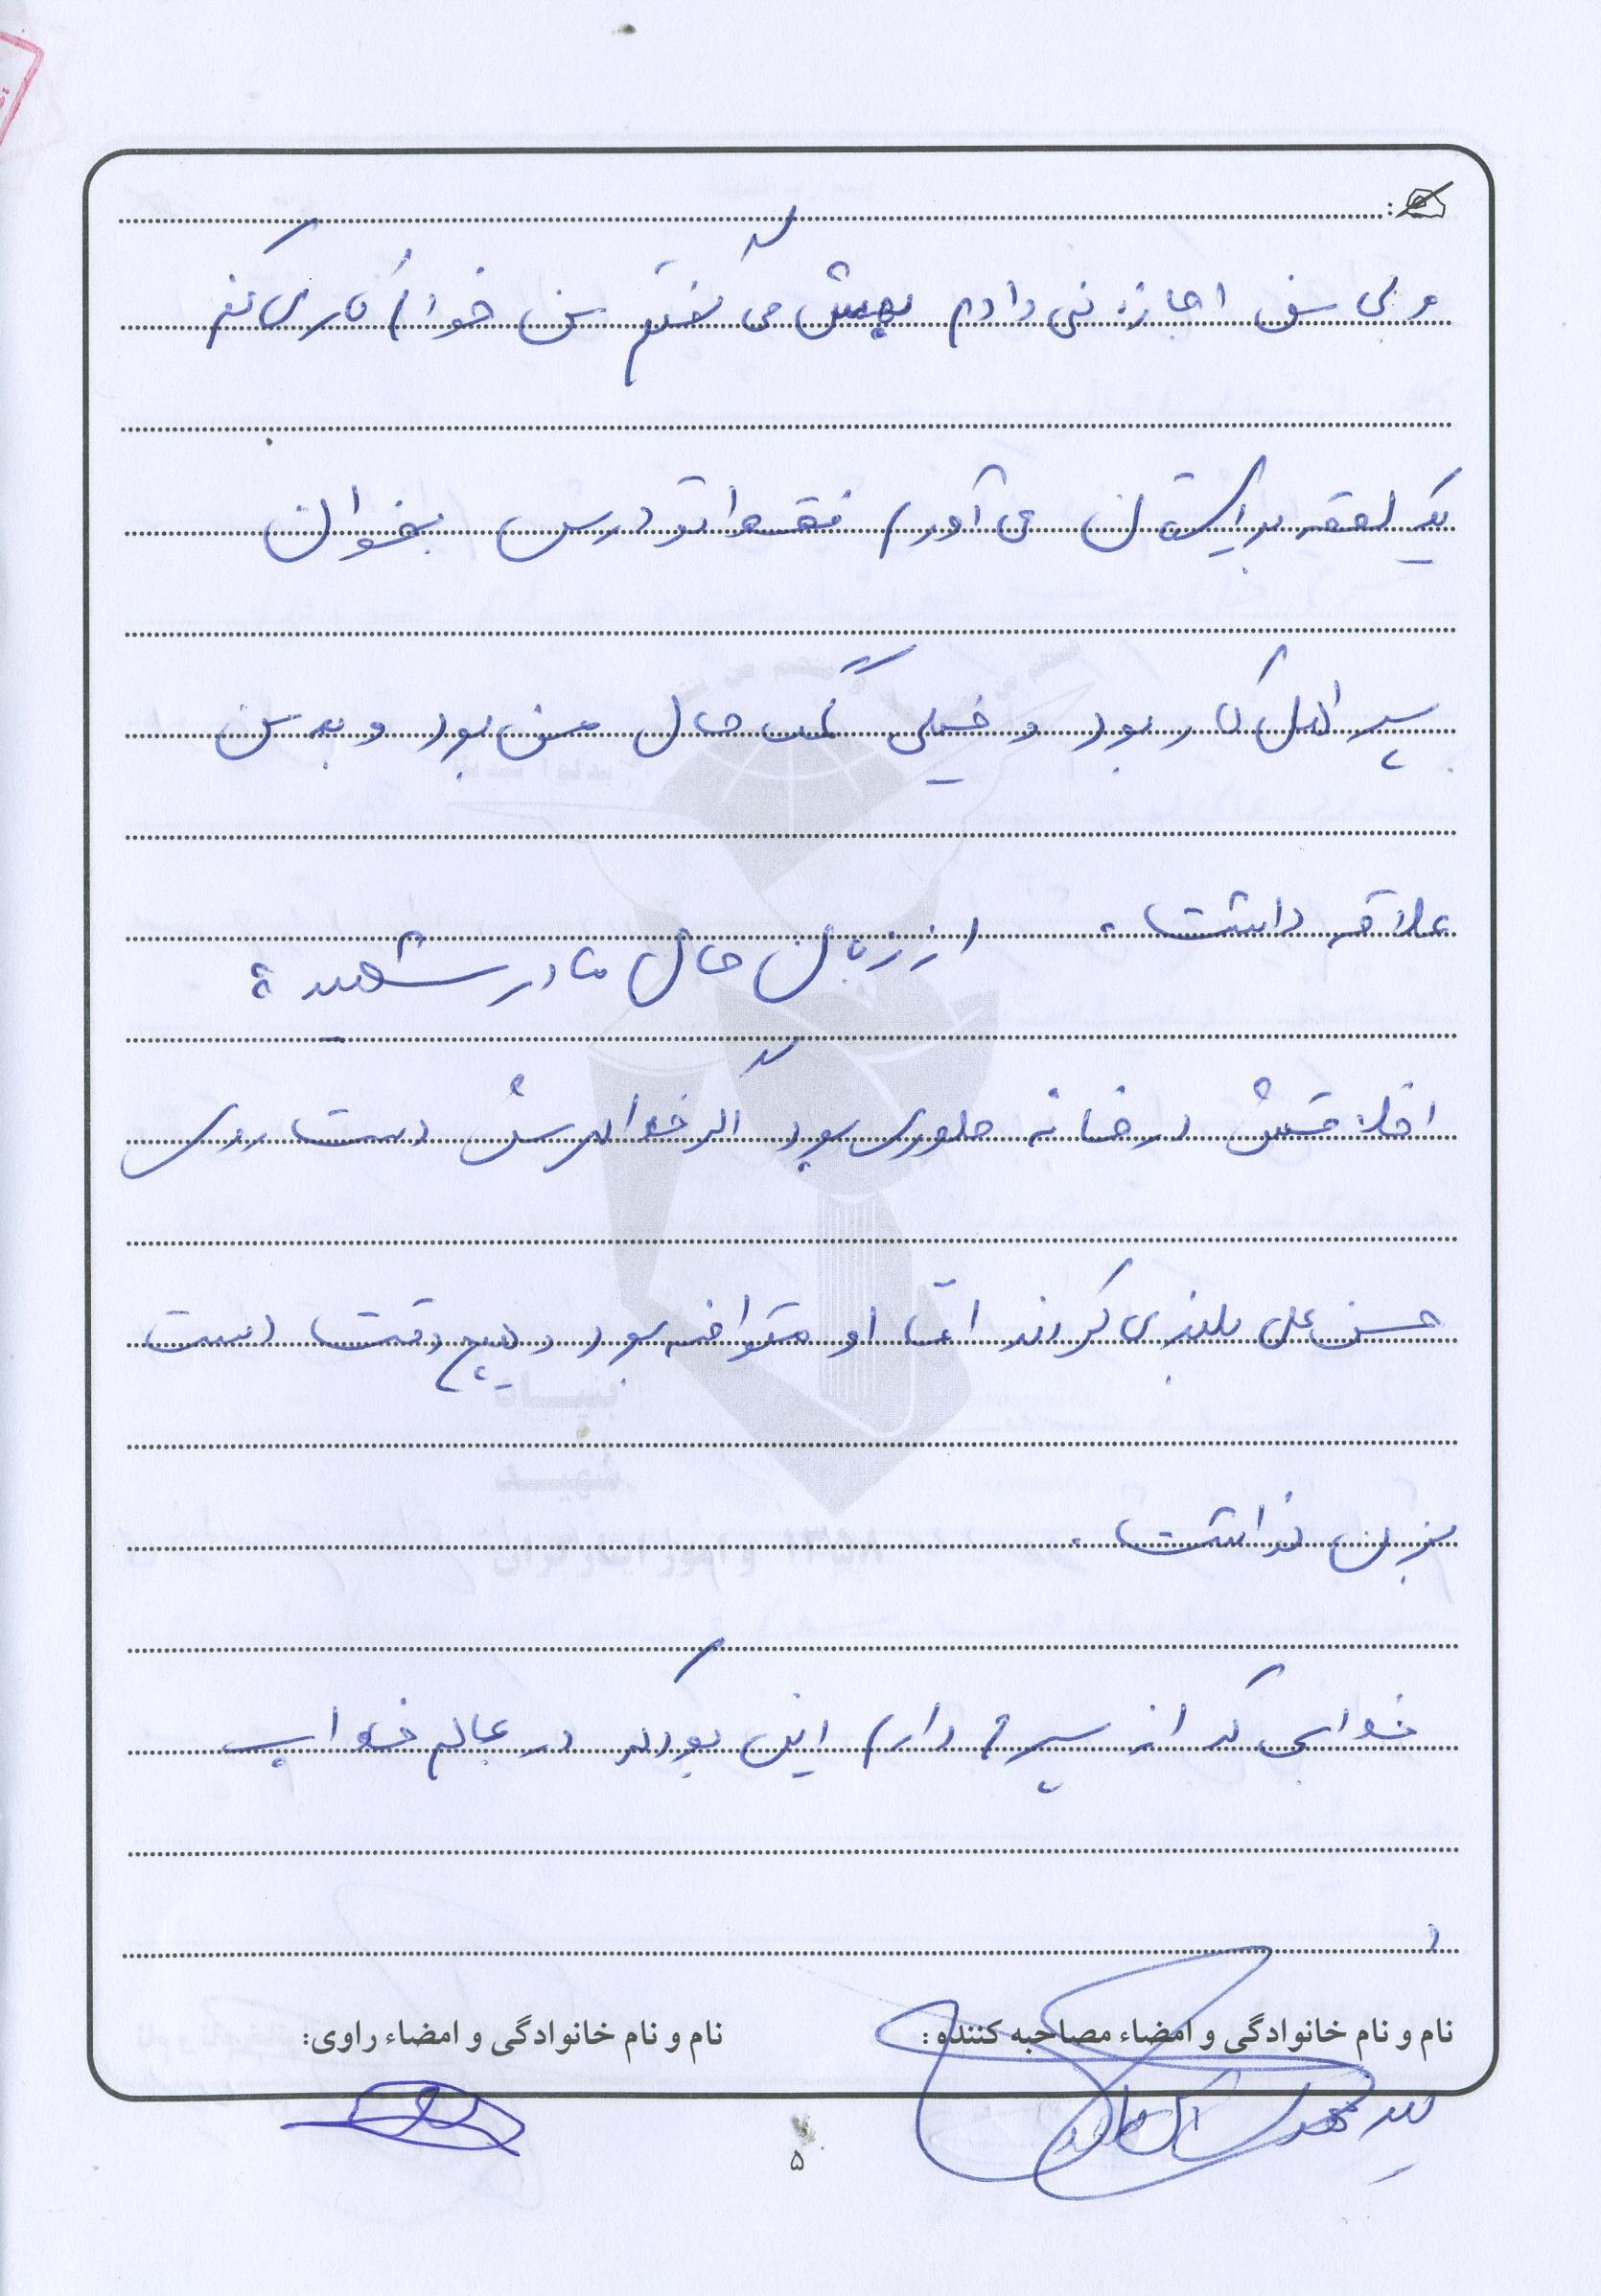 ولی من اجازه نمی دادم بهش می گفتم من خودم کار می کنم
یک لقمه برایتان می آورم فقط تو درس بخوان
پسر اهل کار بود و خیلی کمک حال من بود و به من
علاقه داشت.
از زبان حال مادر شهید:
اخلاقش در خانه طوری بود اگر خواهرش دست روی
حسن علی بلند می کردند اما او متواضع بود و هیچ وقت دست
بزن نداشت.
خوابی که از پسرم دارم این بود که در عالم خواب
نام و نام خانوادگی و امضاء مصاحبه کننده:
نام و نام خانوادگی و امضاء راوی:
سید مهدی
۵